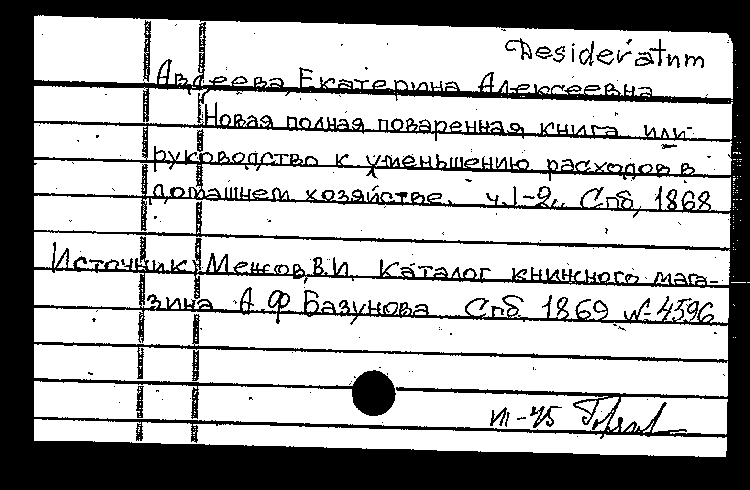 Desideratum
Авдеева, Екатерина Алексеевна
Новая полная поваренная книга или
руководство к уменьшению расходов в
домашнем хозяйстве. ч.1-2. Спб, 1868
Источник: Межов, В.И. Каталог книжного мага-
зина А.Ф Базунова Спб 1869 №4596